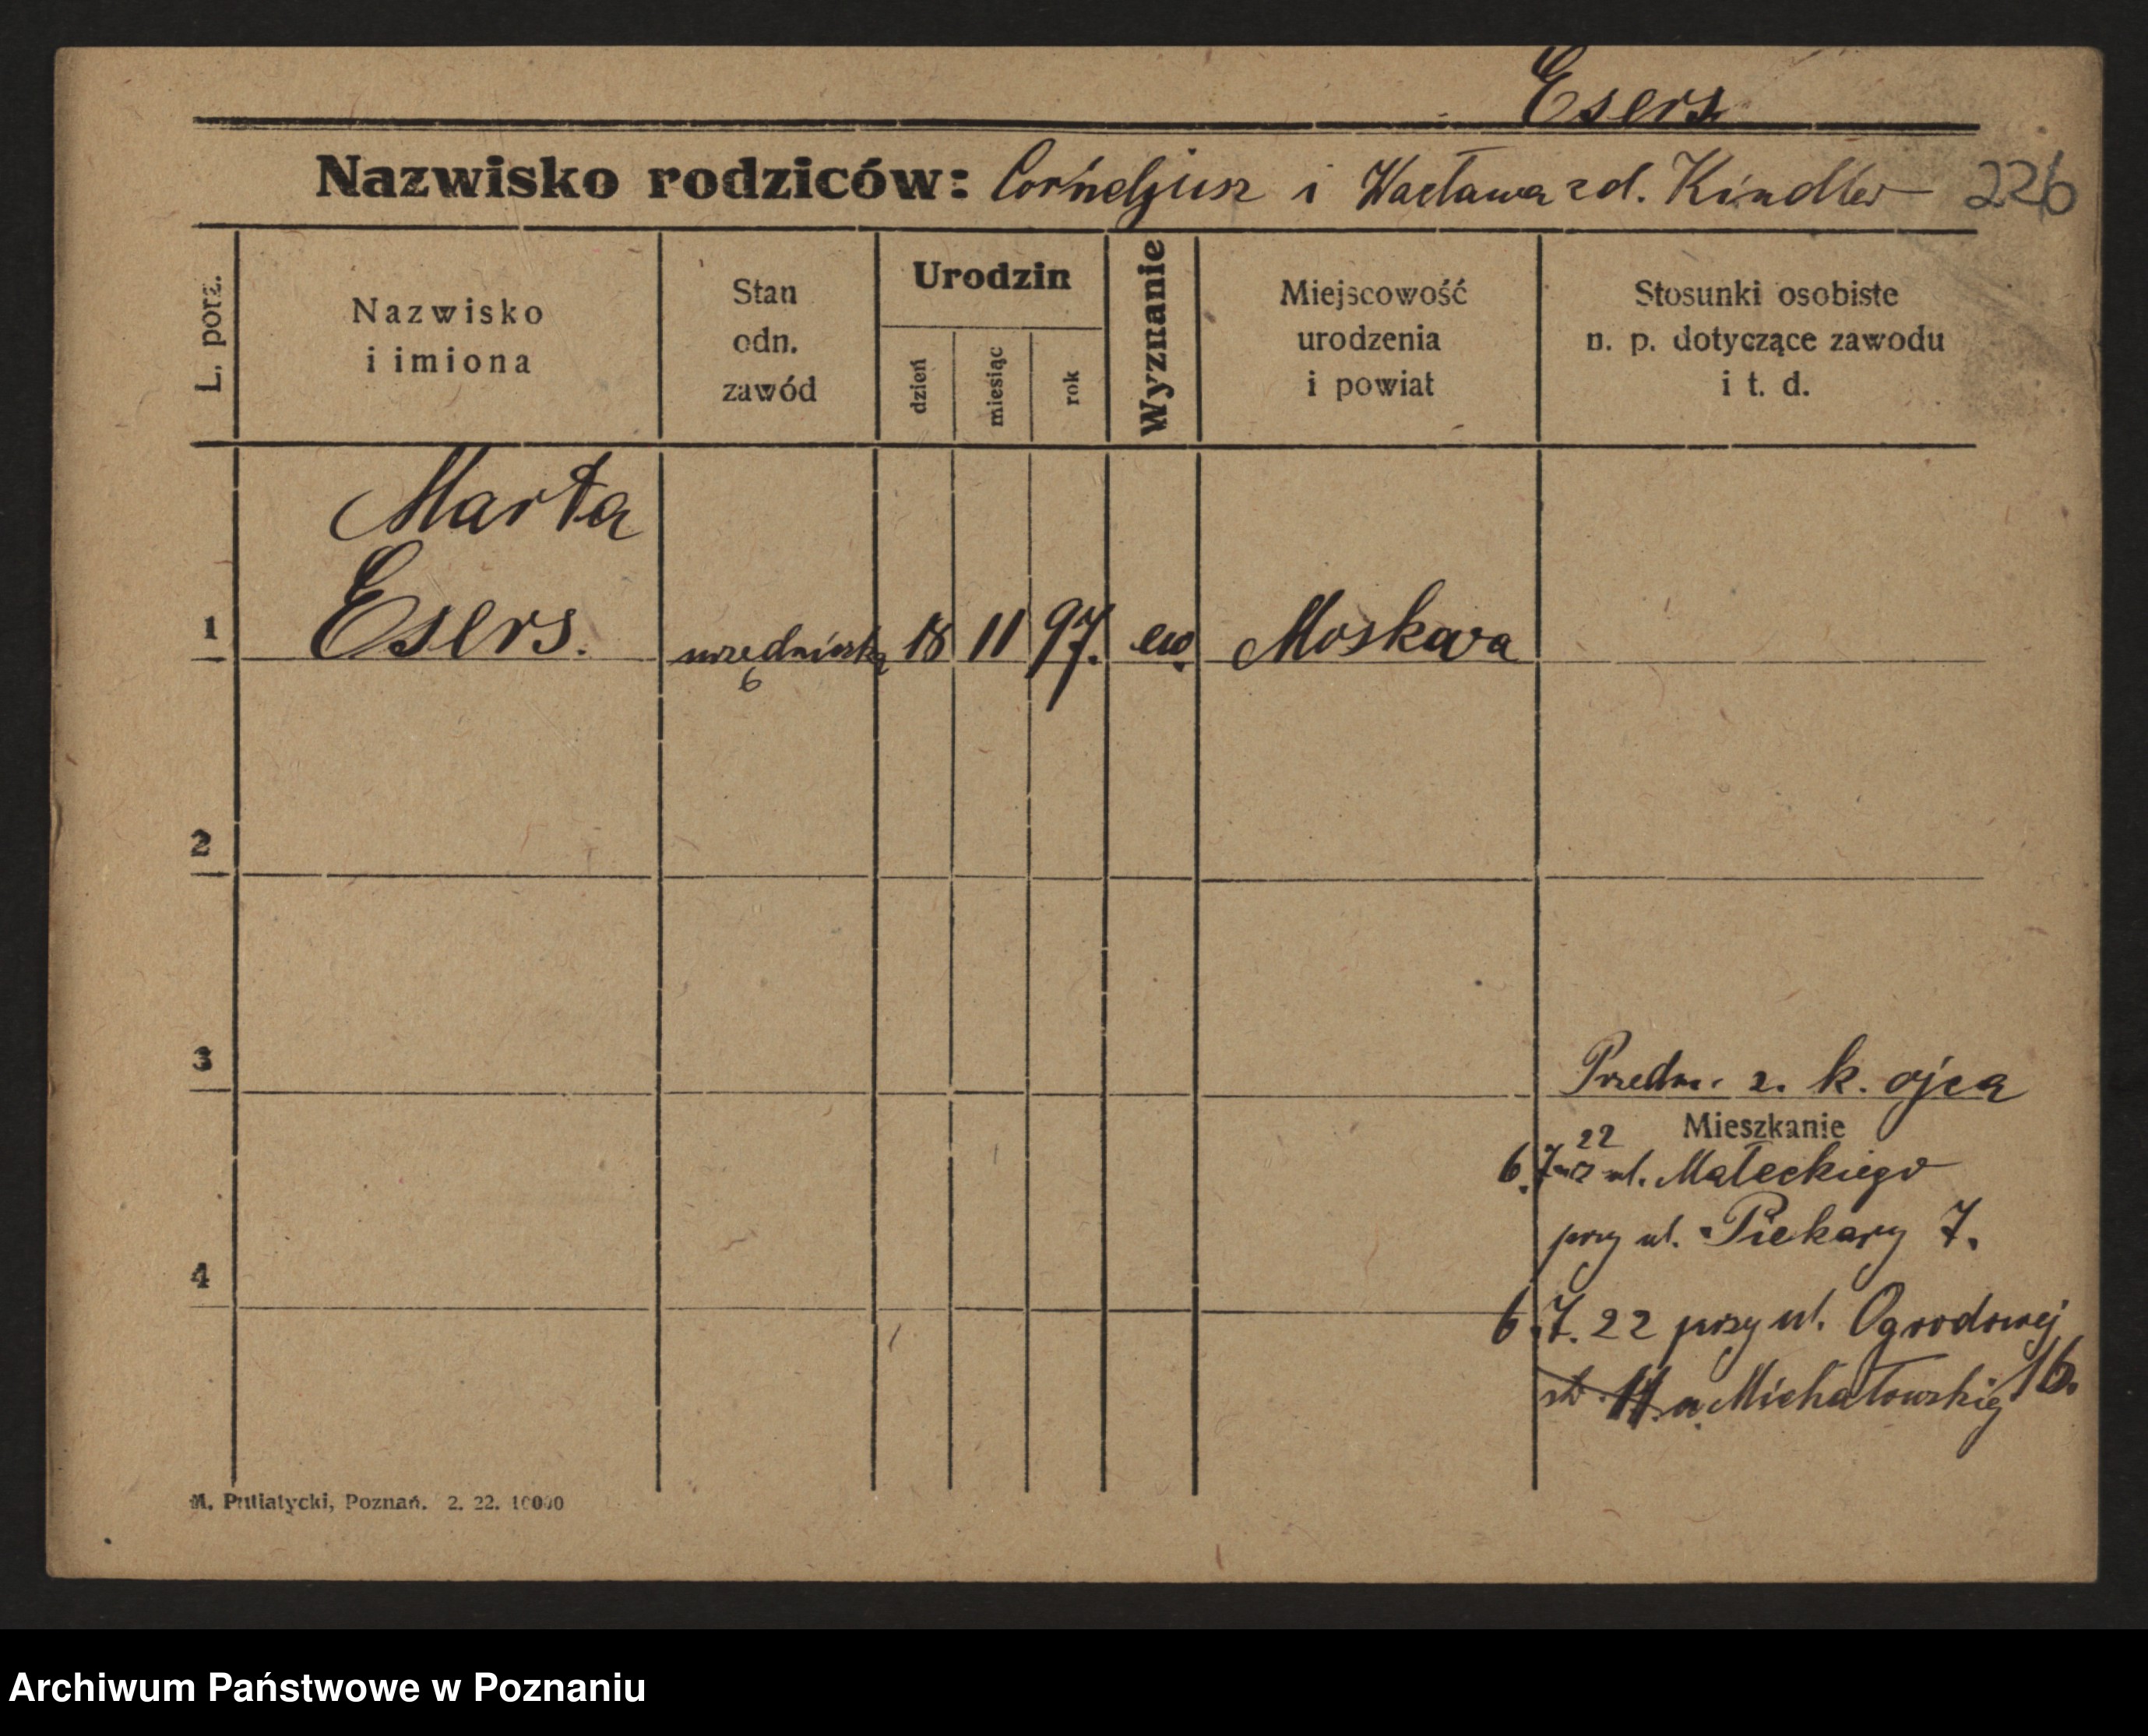 Esers
Nazwisko rodziców: Corneljusz i Wacława zd. Kindler 226
L. porz.
Nazwisko
i imiona
Stan
odn.
zawód
Urodzin
dzień
miesiąc
rok
Wyznanie
Miejscowość
urodzenia
i powiat
Stosunki osobiste
n. p. dotyczące zawodu
i t. d.
Marta
1 Esers. urzędniczka 18 11 97. ew. Moskwa
6
2
3
Przedm. z. k. ojca
Mieszkanie
22
6.7. ul. Małeckiego
przy ul. Piekary 7.
4
6.7.22 przy ul. Ogrodowej
16.
11 u. Michałowskiej
M. Putiatycki, Poznań. 2. 22. 10000
Archiwum Państwowe w Poznaniu